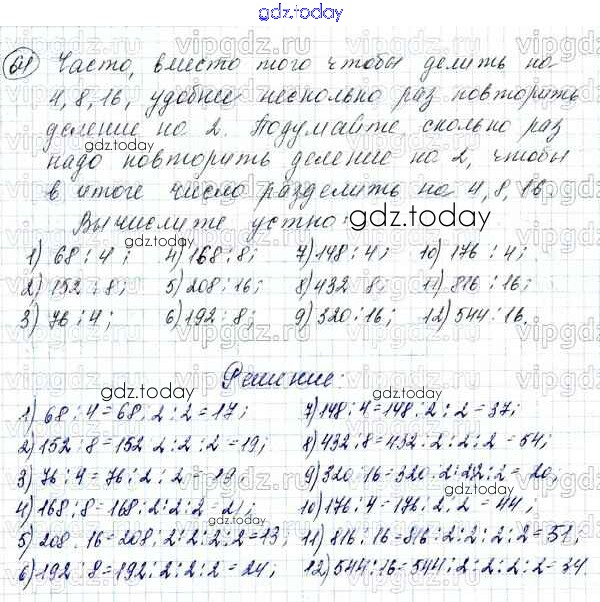 gdz.today
64 Часто, вместо того чтобы делить на
4, 8, 16, удобнее несколько раз повторить
деление на 2. Подумайте, сколько раз
надо повторить деление на 2, чтобы
в итоге число разделить на 4, 8, 16.
Вычислите устно:
gdz.today
1) 68 : 4; 4) 168 : 8; 7) 148 : 4; 10) 176 : 4;
2) 152 : 8; 5) 208 : 16; 8) 432 : 8; 11) 816 : 16;
3) 76 : 4; 6) 192 : 8; 9) 320 : 16; 12) 544 : 16.
Решение:
gdz.today
1) 68 : 4 = 68 : 2 : 2 = 17; 7) 148 : 4 = 148 : 2 : 2 = 37;
2) 152 : 8 = 152 : 2 : 2 : 2 = 19; 8) 432 : 8 = 432 : 2 : 2 : 2 = 54;
3) 76 : 4 = 76 : 2 : 2 = 19 9) 320 : 16 = 320 : 2 : 2 : 2 : 2 = 20;
4) 168 : 8 = 168 : 2 : 2 : 2 = 21; 10) 176 : 4 = 176 : 2 : 2 = 44;
5) 208 : 16 = 208 : 2 : 2 : 2 : 2 = 13; 11) 816 : 16 = 816 : 2 : 2 : 2 : 2 = 51;
6) 192 : 8 = 192 : 2 : 2 : 2 = 24; 12) 544 : 16 = 544 : 2 : 2 : 2 : 2 = 34.